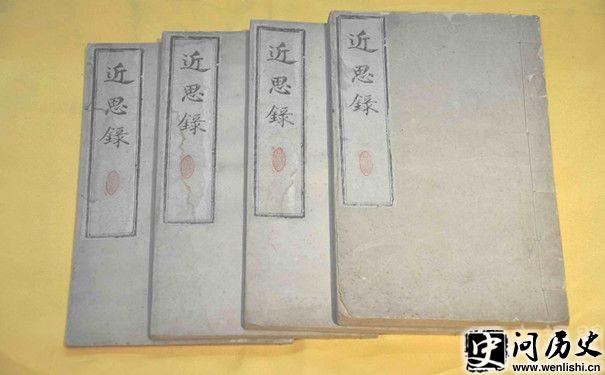 近思錄
近思錄
近思錄
近思錄
问历史
www.wenlishi.cn